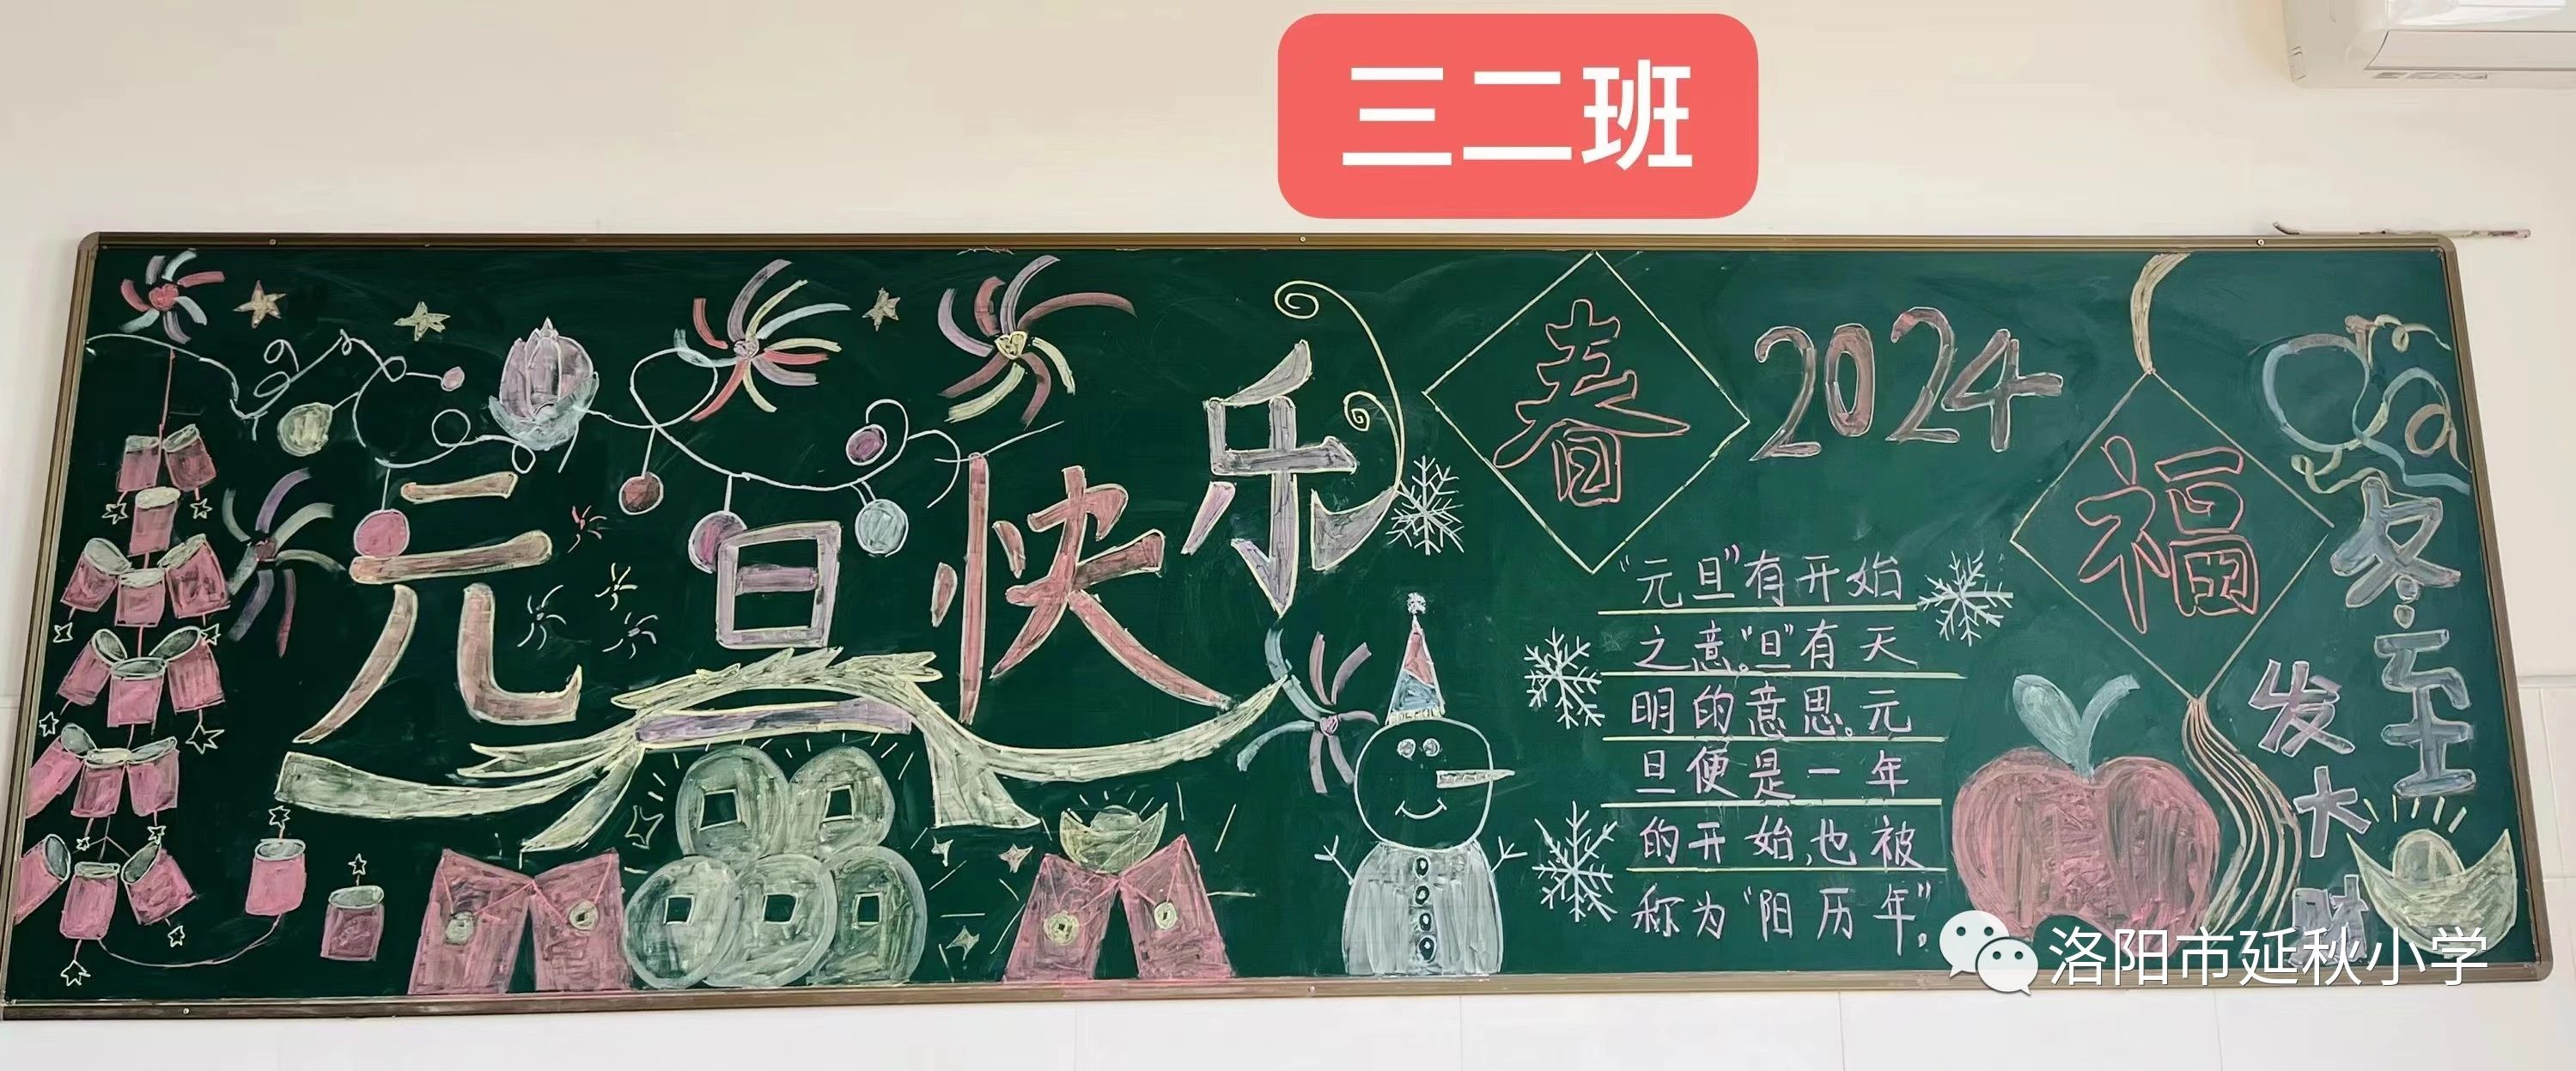 三二班
元旦快乐
春
2024
福
冬至
"元旦"有开始
之意。"旦"有天
明的意思。元
旦便是一年
的开始,也被
称为"阳历年"。
发大财
洛阳市延秋小学